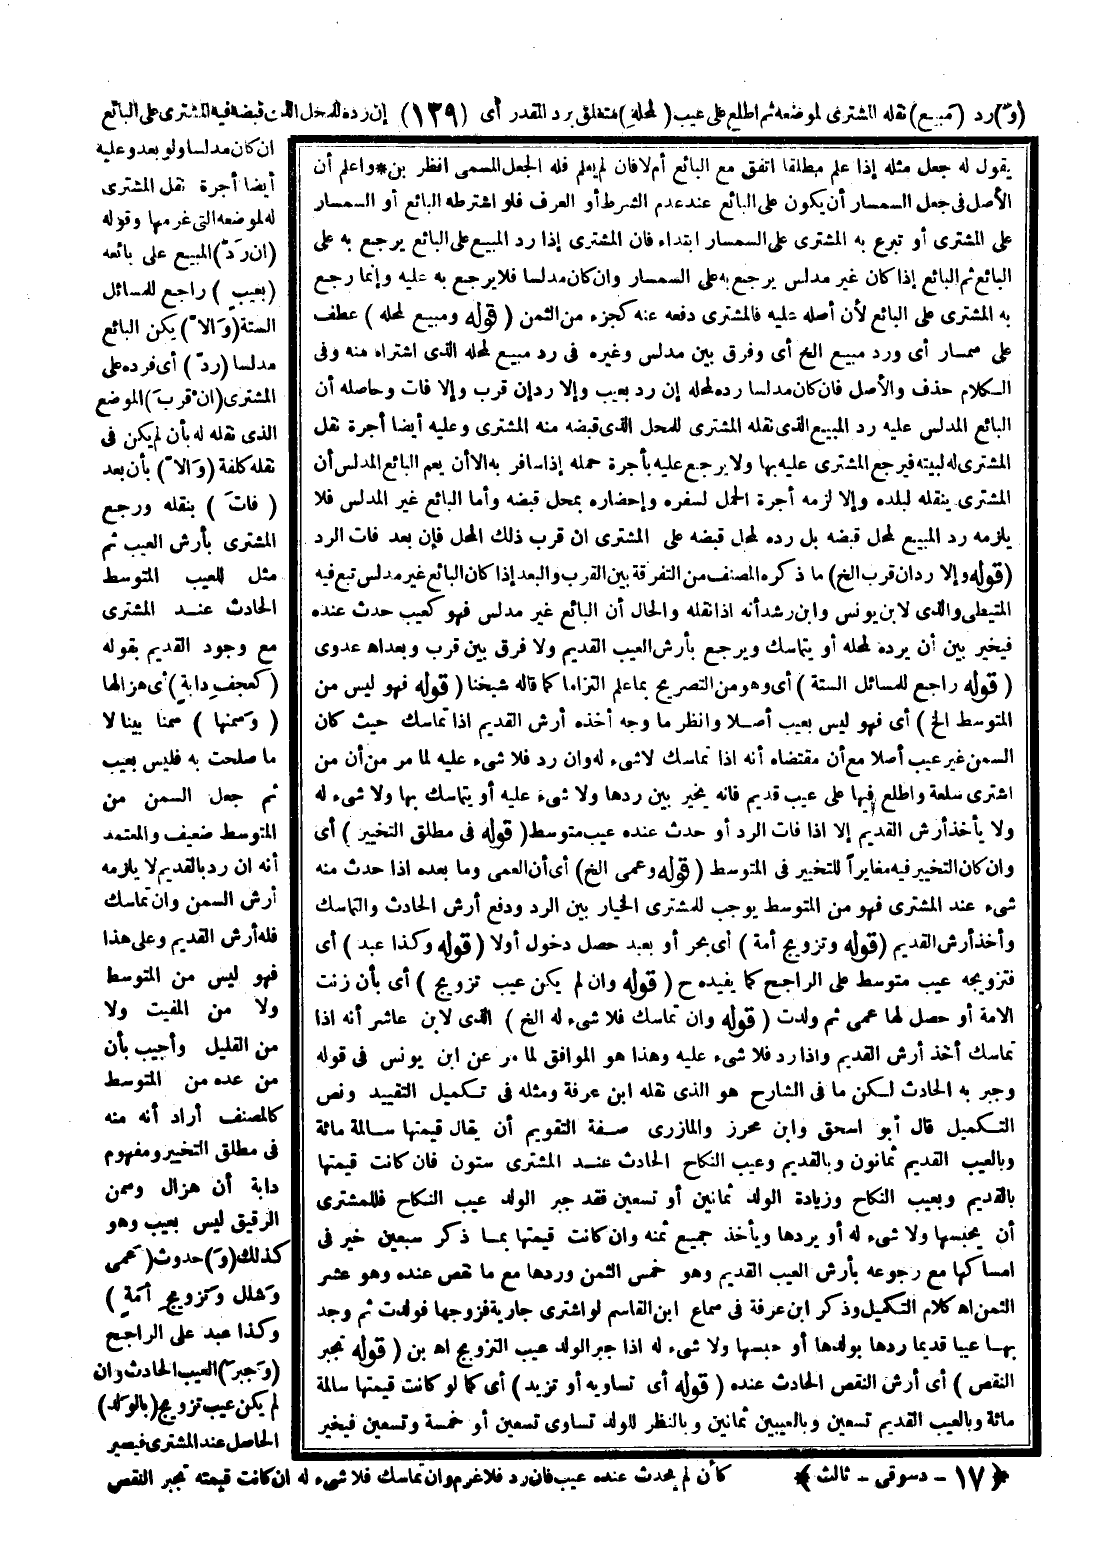 (و) رد (مبيع) نقله المشترى لموضعه ثم اطلع على عيب (لمحله) متعلق برد المقدر أى (١٢٩) إن رده لمحل الذى قبضه فيه المشترى على البائع
ان كان مدلسا ولو بعد وعليه
أيضا أجرة نقل المشترى
له لموضعه التى غرمها وقوله
(ان رد) المبيع على بائعه
(بعيب) راجع للمسائل
الستة (وَالا) يكن البائع
مدلسا (رد) أى فرده على
المشترى (ان قرب) الموضع
الذى نقله له بأن لم يكن فى
نقله كلفة (وَالا) بأن بعد
(فات) بنقله ورجع
المشترى بأرش العيب ثم
مثل للعيب المتوسط
الحادث عند المشترى
مع وجود القديم بقوله
(كعجف دابة) أى هزالها
(وسمنها) سمنا بينا لا
ما صلحت به فليس بعيب
ثم جعل السمن من
المتوسط ضعيف والمعتمد
أنه ان رد بالقديم لا يلزمه
أرش السمن وان تماسك
فله أرش القديم وعلى هذا
فهو ليس من المتوسط
ولا من المفيت ولا
من القليل وأجيب بأن
من عده من المتوسط
كالمصنف أراد أنه منه
فى مطلق التخيير ومفهوم
دابة أن هزال وسمن
الرقيق ليس بعيب وهو
كذلك (وَ) حدوث (عمى
وَشلل وَتزويج أَمَةٍ)
وكذا عبد على الراجح
(وَجبرَ) العيب الحادث وان
لم يكن عيب تزويج (بالولد)
الحاصل عند المشترى فيصير
كأن لم يحدث عنده عيب فان رد فلا غرم وان تماسك فلا شىء له ان كانت قيمته تجبر النقص
يقول له جعل مثله إذا علم مطلقا اتفق مع البائع أم لا فان لم يعلم فله الجعل المسمى انظر بن*واعلم أن
الأصل فى جعل السمسار أن يكون على البائع عند عدم الشرط أو العرف فلو اشترطه البائع أو السمسار
على المشترى أو تبرع به المشترى على السمسار ابتداء فان المشترى إذا رد المبيع على البائع يرجع به على
البائع ثم البائع إذا كان غير مدلس يرجع به على السمسار وان كان مدلسا فلا يرجع به عليه وإنما رجع
به المشترى على البائع لأن أصله عليه فالمشترى دفعه عنه كجزء من الثمن (قوله ومبيع لمحله) عطف
على سمسار أى ورد مبيع الخ أى وفرق بين مدلس وغيره فى رد مبيع لمحله الذى اشتراه منه وفى
الكلام حذف والأصل فان كان مدلسا رده لمحله إن رد بعيب وإلا رد إن قرب وإلا فات وحاصله أن
البائع المدلس عليه رد المبيع الذى نقله المشترى للمحل الذى قبضه منه المشترى وعليه أيضا أجرة نقل
المشترى له لبيته فيرجع المشترى عليه بها ولا يرجع عليه بأجرة حمله إذا سافر به الا أن يعلم البائع المدلس أن
المشترى ينقله لبلده وإلا لزمه أجرة الحمل لسفره وإحضاره بمحل قبضه وأما البائع غير المدلس فلا
يلزمه رد المبيع لمحل قبضه بل رده لمحل قبضه على المشترى ان قرب ذلك المحل فإن بعد فات الرد
(قوله وإلا رد ان قرب الخ) ما ذكره المصنف من التفرقة بين القرب والبعد إذا كان البائع غير مدلس تبع فيه
المتيطى والذى لابن يونس وابن رشد أنه اذا نقله والحال أن البائع غير مدلس فهو كعيب حدث عنده
فيخير بين أن يرده لمحله أو يتماسك ويرجع بأرش العيب القديم ولا فرق بين قرب وبعد اه عدوى
(قوله راجع للمسائل الستة) أى وهو من التصريح بما علم التزاما كما قاله شيخنا (قوله فهو ليس من
المتوسط الخ) أى فهو ليس بعيب أصلا وانظر ما وجه أخذه أرش القديم اذا تماسك حيث كان
السمن غير عيب أصلا مع أن مقتضاه أنه اذا تماسك لا شىء له وان رد فلا شىء عليه لما مر من أن من
اشترى سلعة واطلع فيها على عيب قديم فانه يخير بين ردها ولا شىء عليه أو يتماسك بها ولا شىء له
ولا يأخذ أرش القديم إلا اذا فات الرد أو حدث عنده عيب متوسط (قوله فى مطلق التخيير) أى
وان كان التخيير فيه مغايراً للتخيير فى المتوسط (قوله وعمى الخ) أى أن العمى وما بعده اذا حدث منه
شىء عند المشترى فهو من المتوسط يوجب للمشترى الخيار بين الرد ودفع أرش الحادث والتماسك
وأخذ أرش القديم (قوله وتزويج أمة) أى بحر أو بعبد حصل دخول أولا (قوله وكذا عبد) أى
فتزويجه عيب متوسط على الراجح كما يفيده ح (قوله وان لم يكن عيب تزويج) أى بأن زنت
الامة أو حصل لها عمى ثم ولدت (قوله وان تماسك فلا شىء له الخ) الذى لابن عاشر أنه اذا
تماسك أخذ أرش القديم واذا رد فلا شىء عليه وهذا هو الموافق لما مر عن ابن يونس فى قوله
وجبر به الحادث لكن ما فى الشارح هو الذى نقله ابن عرفة ومثله فى تكميل التقييد ونص
التكميل قال أبو اسحق وابن محرز والمازرى صفة التقويم أن يقال قيمتها سالمة مائة
وبالعيب القديم ثمانون وبالقديم وعيب النكاح الحادث عند المشترى ستون فان كانت قيمتها
بالقديم وبعيب النكاح وزيادة الولد ثمانين أو تسعين فقد جبر الولد عيب النكاح فللمشترى
أن يحبسها ولا شىء له أو يردها ويأخذ جميع ثمنه وان كانت قيمتها بما ذكر سبعين خير فى
امساكها مع رجوعه بأرش العيب القديم وهو خمس الثمن وردها مع ما نقص عنده وهو عشر
الثمن اه كلام التكميل وذكر ابن عرفة فى سماع ابن القاسم لو اشترى جارية فزوجها فولدت ثم وجد
بها عيبا قديما ردها بولدها أو حبسها ولا شىء له اذا جبر الولد عيب التزويج اه بن (قوله تجبر
النقص) أى أرش النقص الحادث عنده (قوله أى تساويه أو تزيد) أى كما لو كانت قيمتها سالمة
مائة وبالعيب القديم تسعين وبالعيبين ثمانين وبالنظر للولد تساوى تسعين أو خمسة وتسعين فيخير
﴿١٧ - دسوقى - ثالث﴾